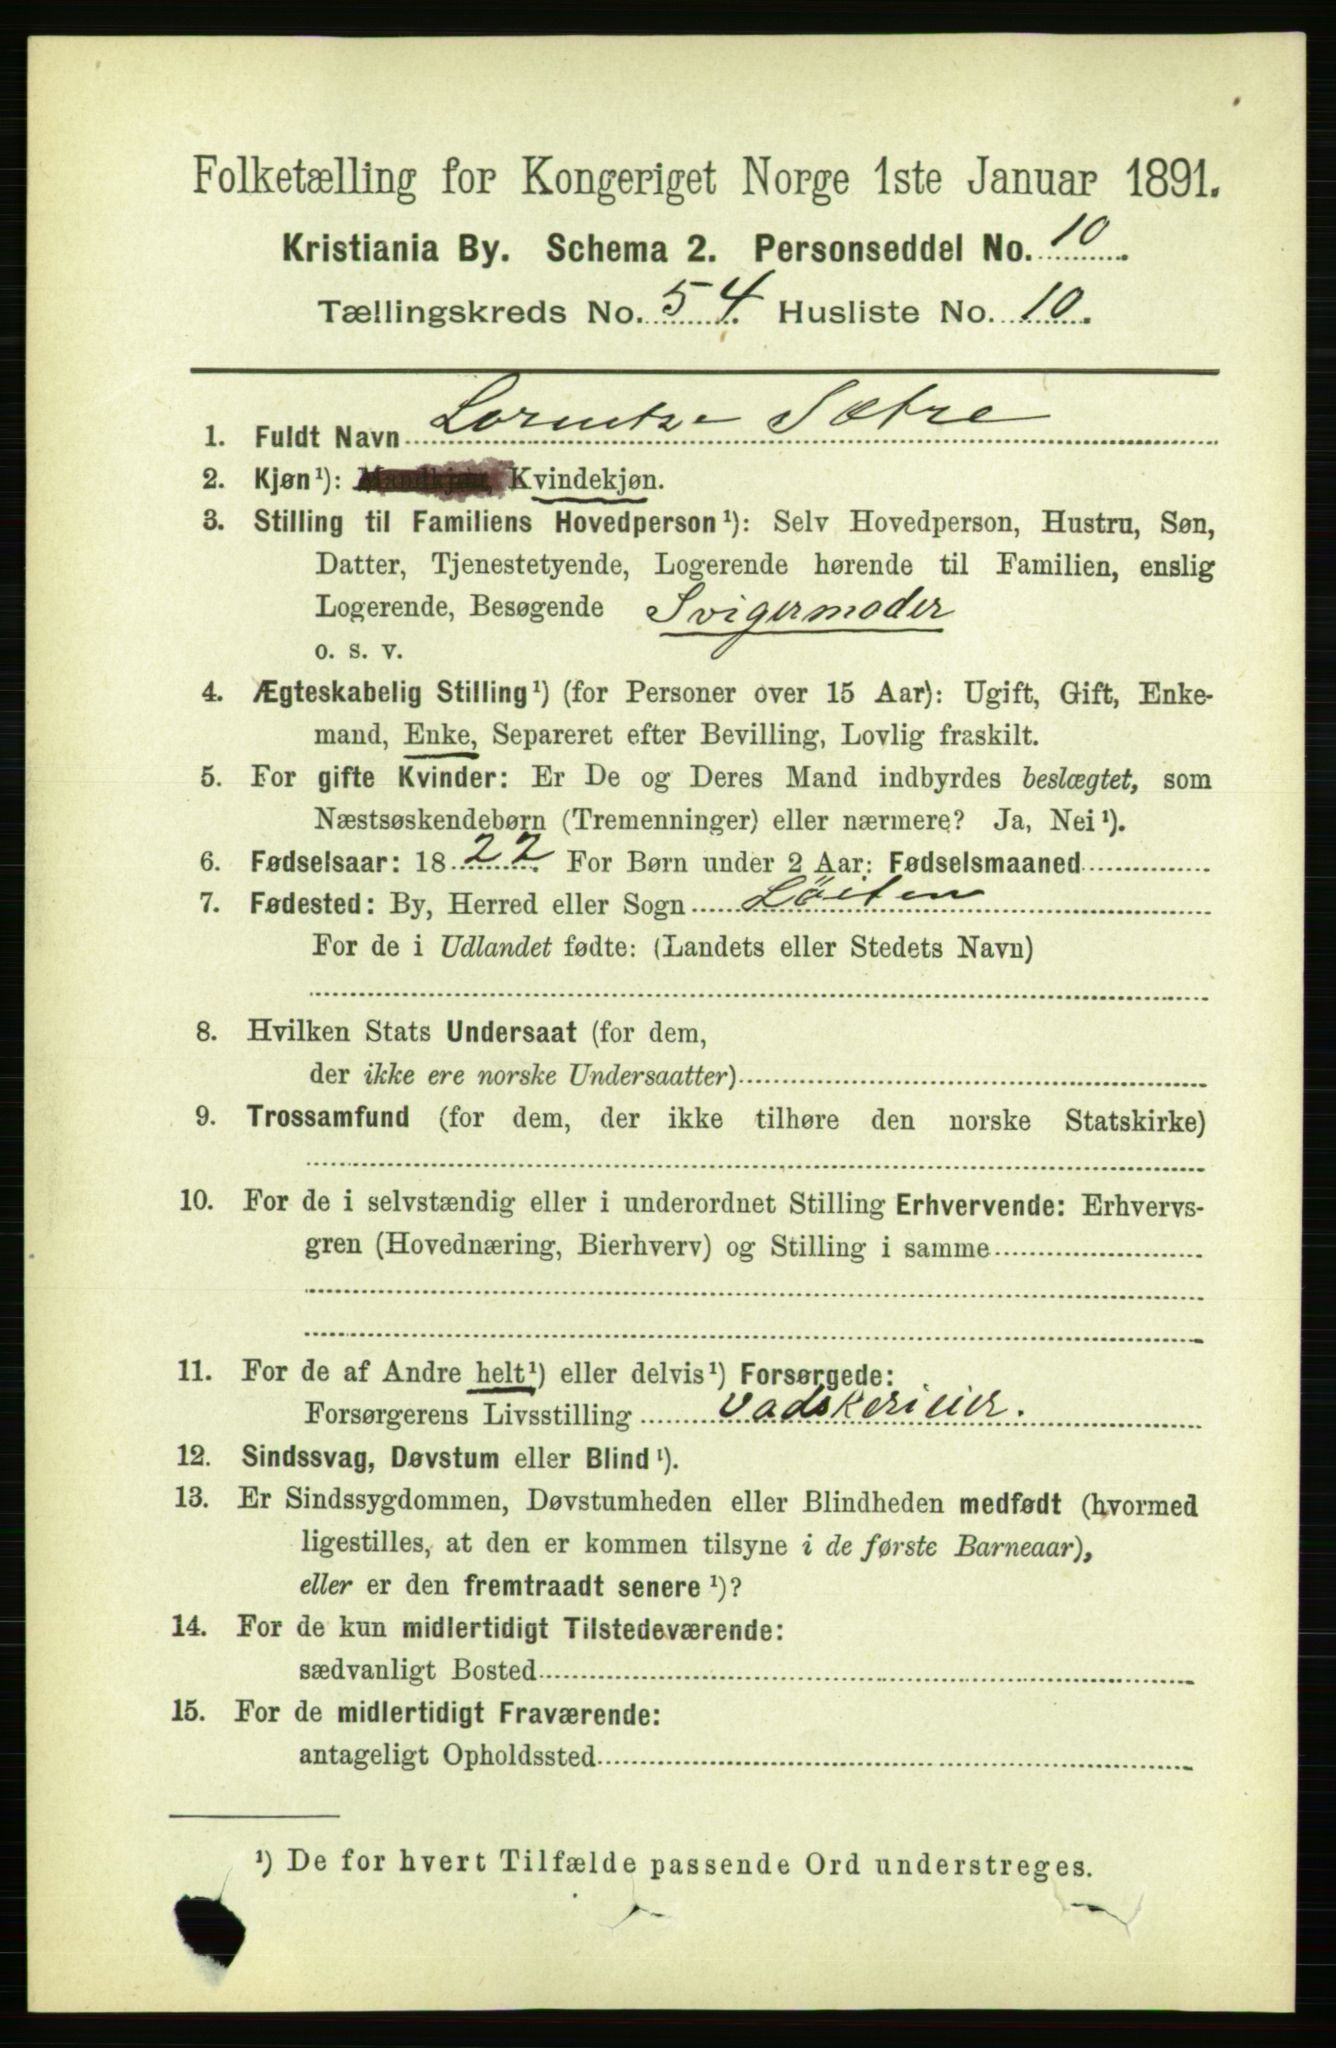 Folketælling for Kongeriget Norge 1ste Januar 1891.
Kristiania By. Schema 2. Personseddel No. 10.
Tællingskreds No. 54. Husliste No. 10.
1. Fuldt Navn Lorentze Sætre
2. Kjøn¹): Mandkjøn, Kvindekjøn.
3. Stilling til Familiens Hovedperson¹): Selv Hovedperson, Hustru, Søn,
Datter, Tjenestetyende, Logerende hørende til Familien, enslig
Logerende, Besøgende Svigermoder
o. s. v.
4. Ægteskabelig Stilling¹) (for Personer over 15 Aar): Ugift, Gift, Enke-
mand, Enke, Separeret efter Bevilling, Lovlig fraskilt.
5. For gifte Kvinder: Er De og Deres Mand indbyrdes beslægtet, som
Næstsøskendebørn (Tremenninger) eller nærmere? Ja, Nei¹).
6. Fødselsaar: 1822. For Børn under 2 Aar: Fødselsmaaned
7. Fødested: By, Herred eller Sogn Löiten
For de i Udlandet fødte: (Landets eller Stedets Navn)
8. Hvilken Stats Undersaat (for dem,
der ikke ere norske Undersaatter)
9. Trossamfund (for dem, der ikke tilhøre den norske Statskirke)
10. For de i selvstændig eller i underordnet Stilling Erhvervende: Erhvervs-
gren (Hovednæring, Bierhverv) og Stilling i samme
11. For de af Andre helt¹) eller delvis¹) Forsørgede:
Forsørgerens Livsstilling Vadskerieier.
12. Sindssvag, Døvstum eller Blind¹).
13. Er Sindssygdommen, Døvstumheden eller Blindheden medfødt (hvormed
ligestilles, at den er kommen tilsyne i de første Barneaar),
eller er den fremtraadt senere¹)?
14. For de kun midlertidigt Tilstedeværende:
sædvanligt Bosted
15. For de midlertidigt Fraværende:
antageligt Opholdssted
¹) De for hvert Tilfælde passende Ord understreges.